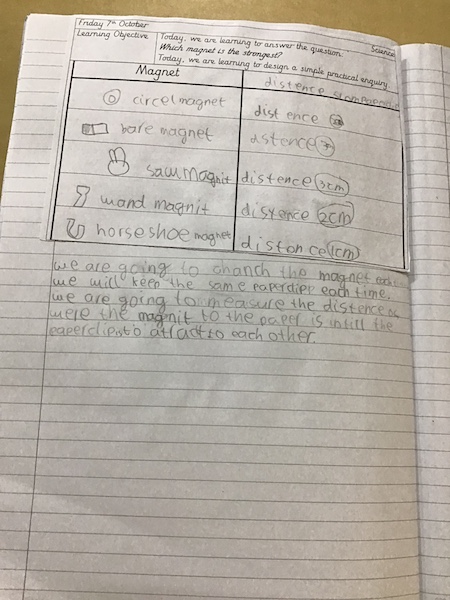 Friday 7th October
Science
Learning Objective
Today, we are learning to answer the question:
Which magnet is the strongest?
Today, we are learning to design a simple practical enquiry.
Magnet
distence
circel magnet
dist ence
bare magnet
dstence
saw magnit
distence 3cm
wand magnit
disyence 2cm
horseshoe magnet
distonce 1cm
we are going to chanch the magnet each
we will keep the same paperclier each time.
we are going to measure the distence
were the magnit to the paper is intill the
paperclient o atract to each other.